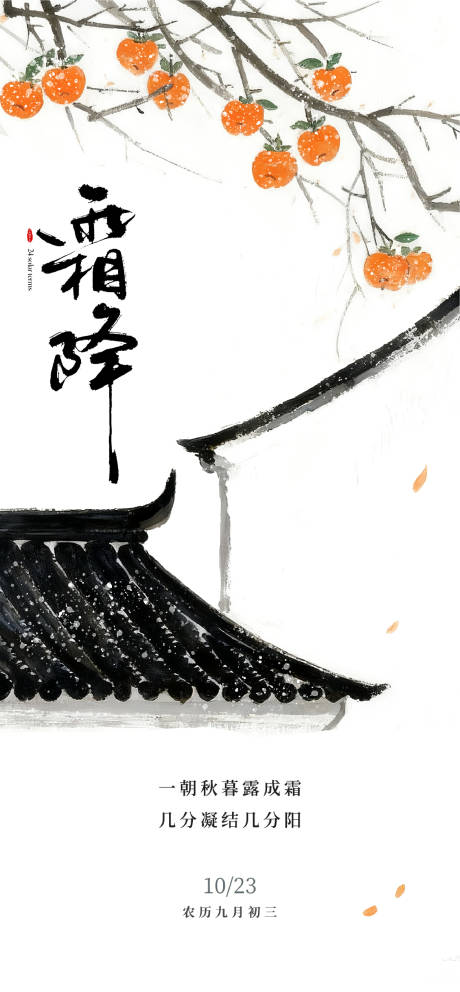 霜降
24 solar terms
一朝秋暮露成霜
几分凝结几分阳
10/23
农历九月初三